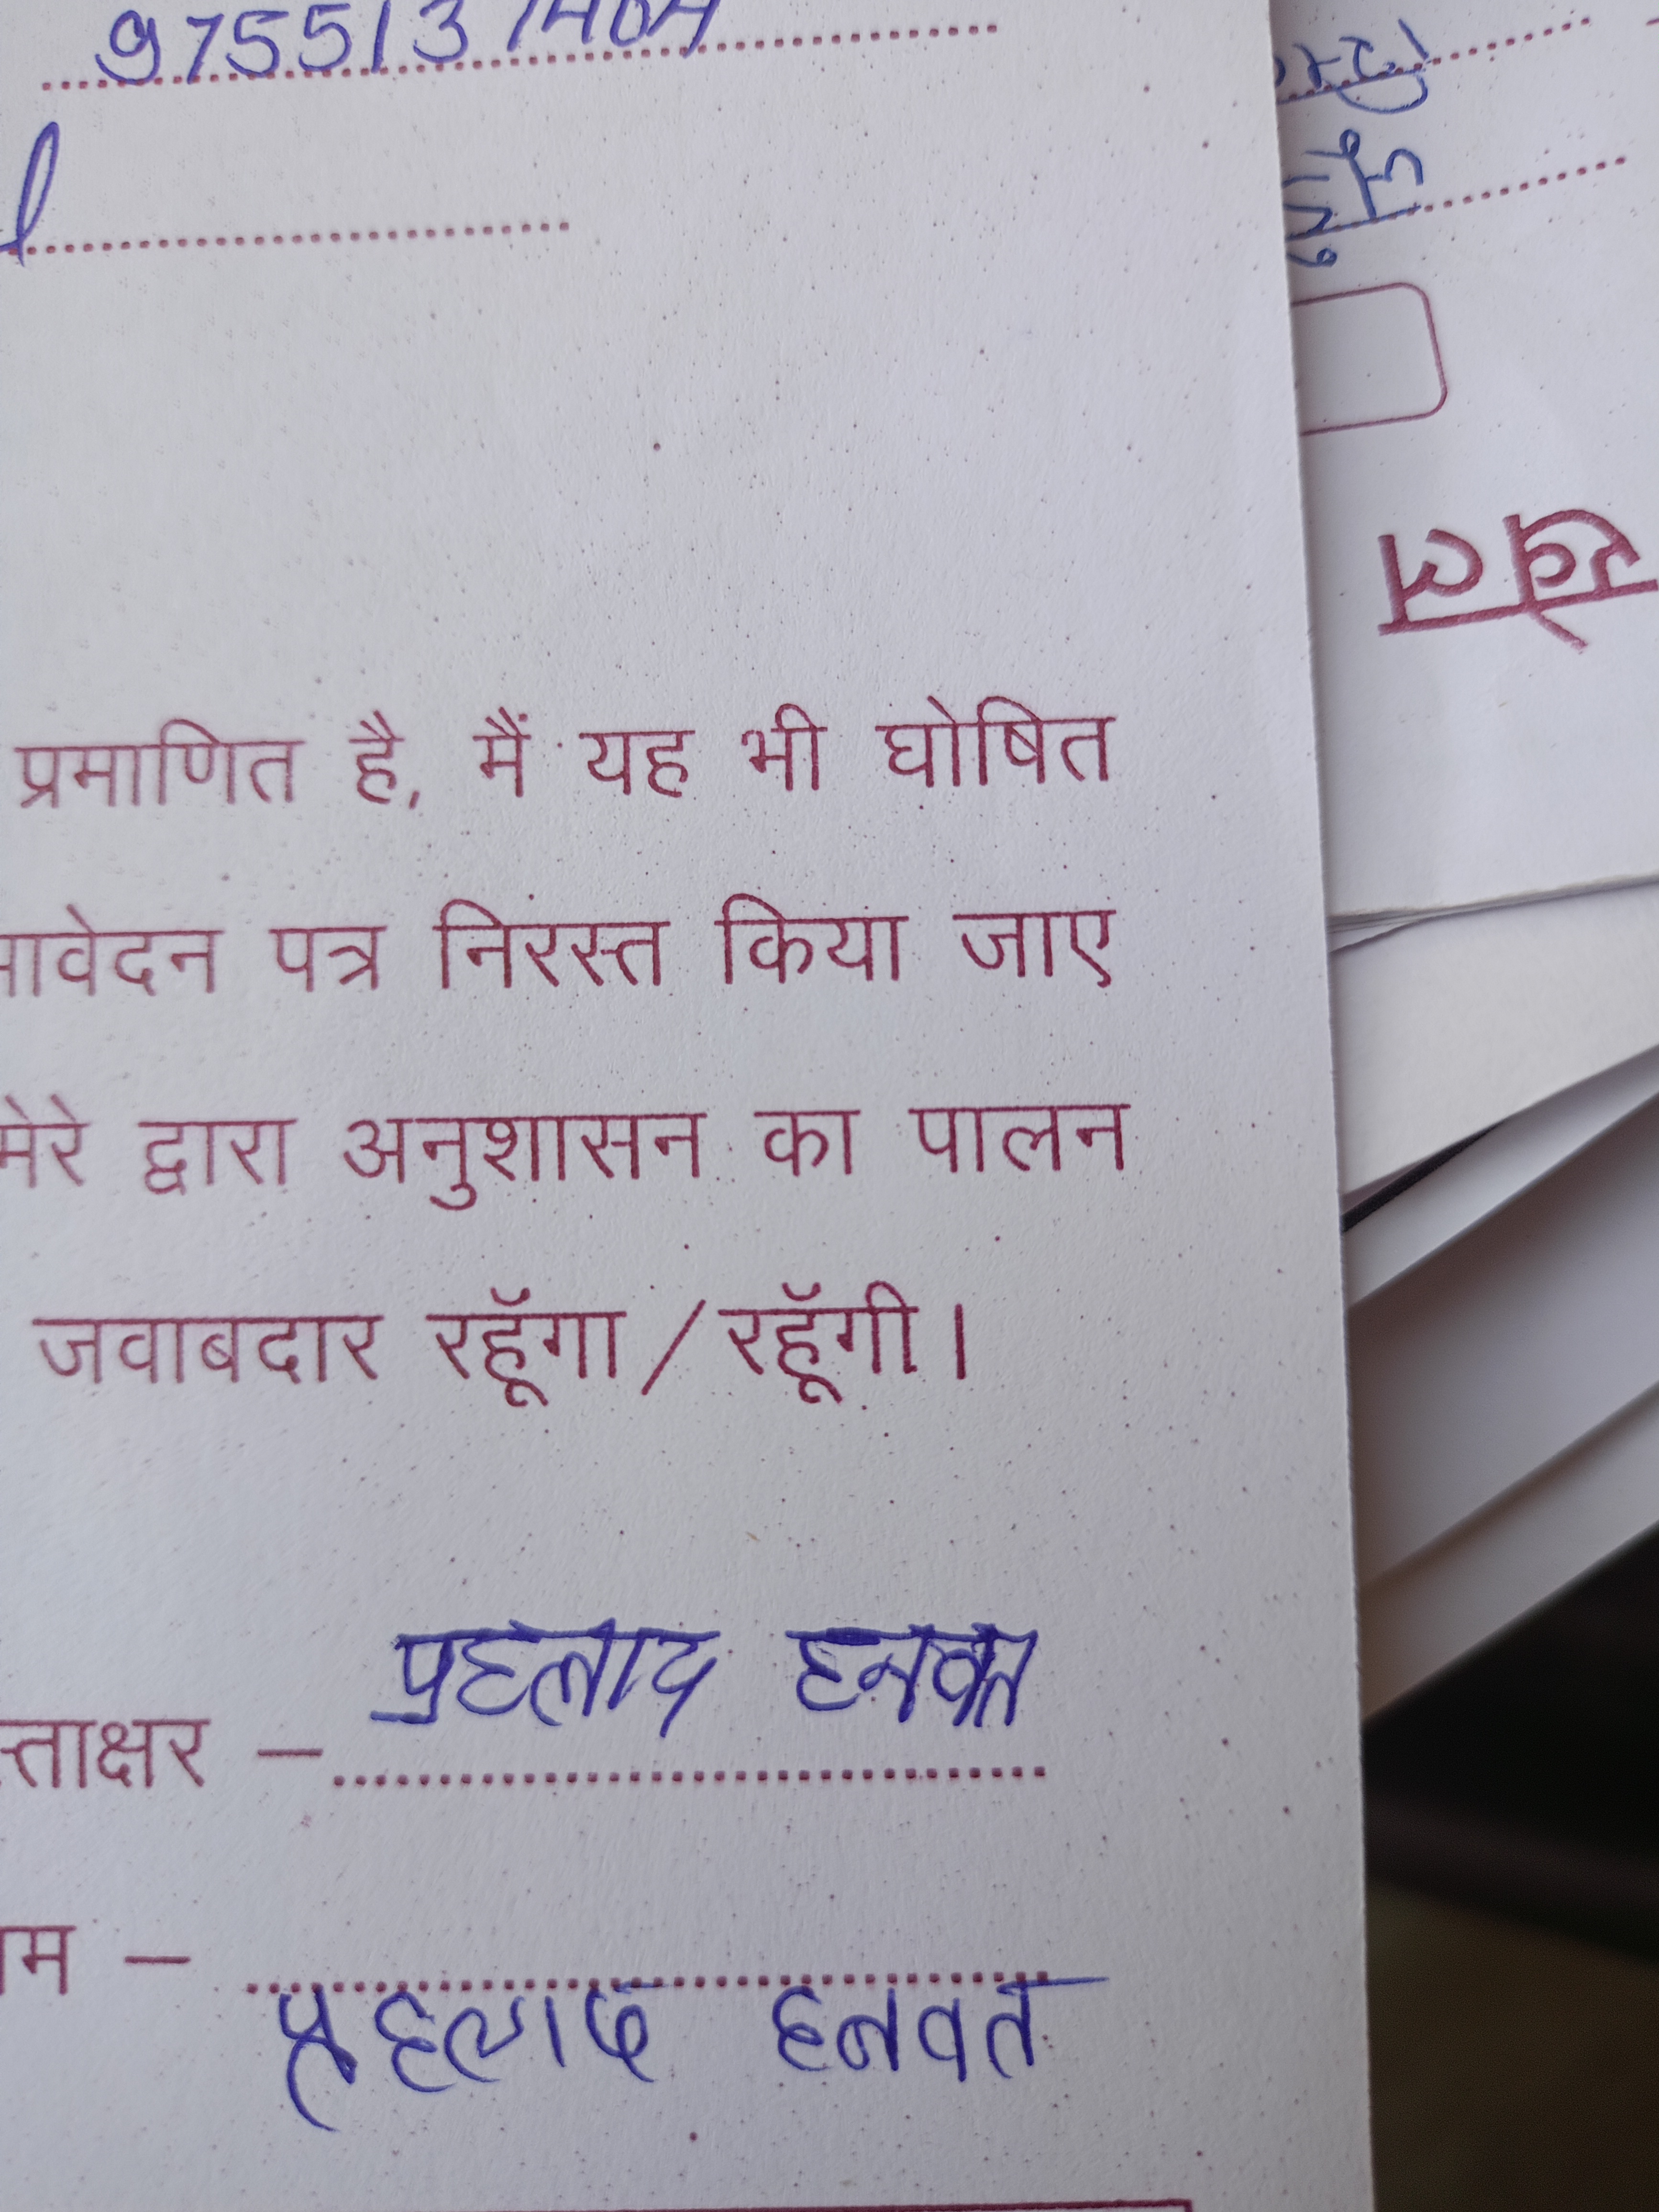 9755137404
प्रमाणित है, मैं यह भी घोषित
आवेदन पत्र निरस्त किया जाए
मेरे द्वारा अनुशासन का पालन
जवाबदार रहूॅगा/रहूॅगी।
स्ताक्षर – प्रहलाद हनवत
ाम –
प्रहलाद हनवत
खेल